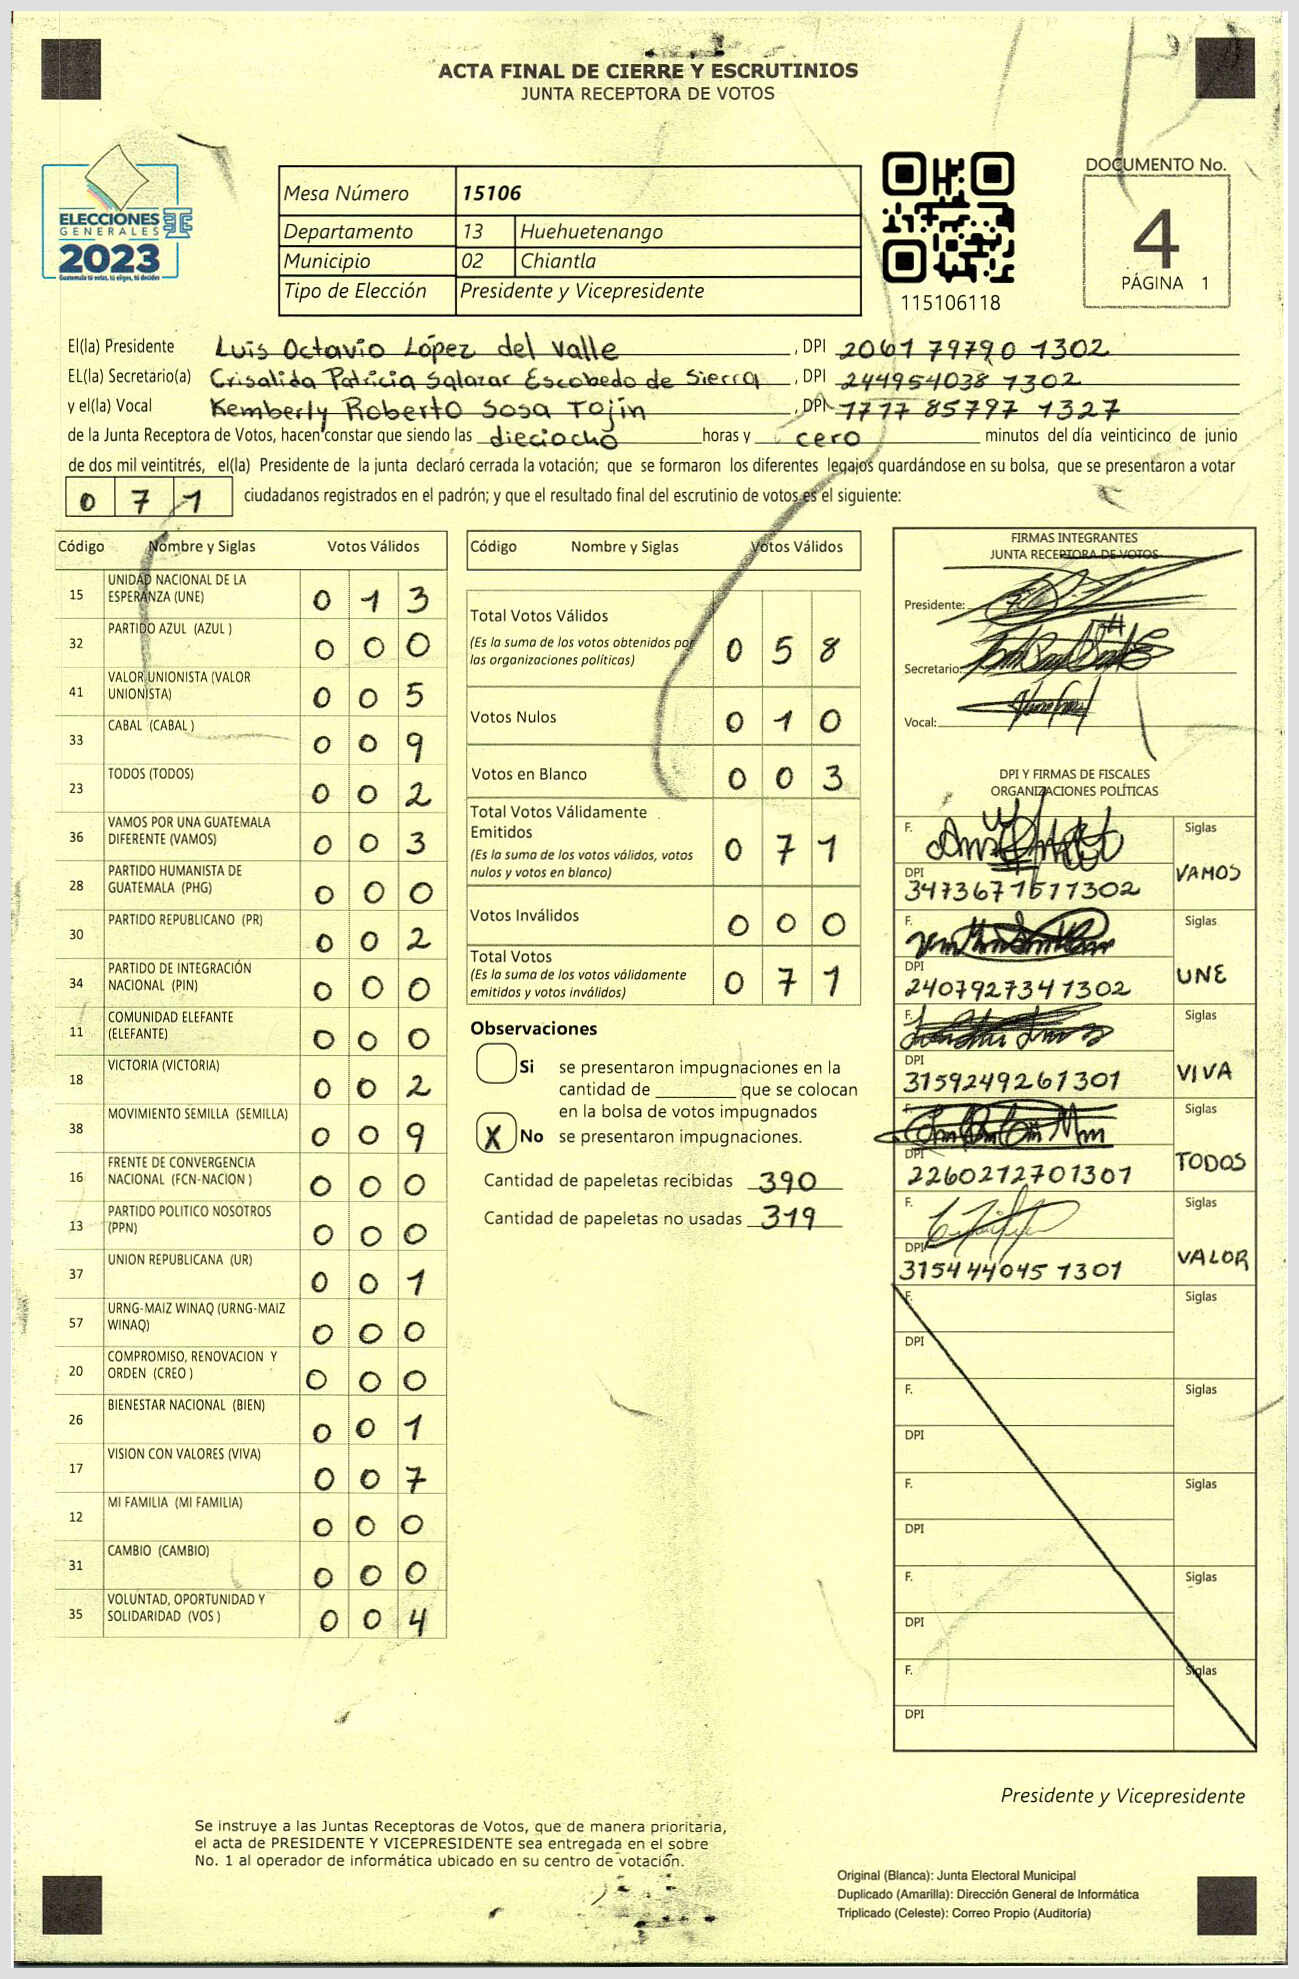 ACTA FINAL DE CIERRE Y ESCRUTINIOS
JUNTA RECEPTORA DE VOTOS
ELECCIONES
GENERALES
2023
Guatemala tú votas, tú eliges, tú decides
Mesa Número 15106
Departamento 13 Huehuetenango
Municipio 02 Chiantla
Tipo de Elección Presidente y Vicepresidente
115106118
DOCUMENTO No.
4
PÁGINA 1
El(la) Presidente Luis Octavio López del Valle , DPI 2061 79790 1302
EL(la) Secretario(a) Crisalida Patricia Salazar Escobedo de Sierra , DPI 244954038 1302
y el(la) Vocal Kemberly Roberto Sosa Tojín , DPI 1717 85797 1327
de la Junta Receptora de Votos, hacen constar que siendo las dieciocho horas y cero minutos del día veinticinco de junio
de dos mil veintitrés, el(la) Presidente de la junta declaró cerrada la votación; que se formaron los diferentes legajos guardándose en su bolsa, que se presentaron a votar
071 ciudadanos registrados en el padrón; y que el resultado final del escrutinio de votos es el siguiente:
Código Nombre y Siglas Votos Válidos
15 UNIDAD NACIONAL DE LA ESPERANZA (UNE) 0 1 3
32 PARTIDO AZUL (AZUL ) 0 0 0
41 VALOR UNIONISTA (VALOR UNIONISTA) 0 0 5
33 CABAL (CABAL ) 0 0 9
23 TODOS (TODOS) 0 0 2
36 VAMOS POR UNA GUATEMALA DIFERENTE (VAMOS) 0 0 3
28 PARTIDO HUMANISTA DE GUATEMALA (PHG) 0 0 0
30 PARTIDO REPUBLICANO (PR) 0 0 2
34 PARTIDO DE INTEGRACIÓN NACIONAL (PIN) 0 0 0
11 COMUNIDAD ELEFANTE (ELEFANTE) 0 0 0
18 VICTORIA (VICTORIA) 0 0 2
38 MOVIMIENTO SEMILLA (SEMILLA) 0 0 9
16 FRENTE DE CONVERGENCIA NACIONAL (FCN-NACION ) 0 0 0
13 PARTIDO POLITICO NOSOTROS (PPN) 0 0 0
37 UNION REPUBLICANA (UR) 0 0 1
57 URNG-MAIZ WINAQ (URNG-MAIZ WINAQ) 0 0 0
20 COMPROMISO, RENOVACION Y ORDEN (CREO ) 0 0 0
26 BIENESTAR NACIONAL (BIEN) 0 0 1
17 VISION CON VALORES (VIVA) 0 0 7
12 MI FAMILIA (MI FAMILIA) 0 0 0
31 CAMBIO (CAMBIO) 0 0 0
35 VOLUNTAD, OPORTUNIDAD Y SOLIDARIDAD (VOS ) 0 0 4
Código Nombre y Siglas Votos Válidos
Total Votos Válidos
(Es la suma de los votos obtenidos por las organizaciones políticas) 0 5 8
Votos Nulos 0 1 0
Votos en Blanco 0 0 3
Total Votos Válidamente Emitidos
(Es la suma de los votos válidos, votos nulos y votos en blanco) 0 7 1
Votos Inválidos 0 0 0
Total Votos
(Es la suma de los votos válidamente emitidos y votos inválidos) 0 7 1
Observaciones
Si se presentaron impugnaciones en la
cantidad de ________ que se colocan
en la bolsa de votos impugnados
X No se presentaron impugnaciones.
Cantidad de papeletas recibidas 390
Cantidad de papeletas no usadas 319
FIRMAS INTEGRANTES
JUNTA RECEPTORA DE VOTOS
Presidente:
Secretario:
Vocal:
DPI Y FIRMAS DE FISCALES
ORGANIZACIONES POLÍTICAS
F. Siglas
DPI VAMOS
3473671511302
F. Siglas
DPI UNE
2407927341302
F. Siglas
DPI VIVA
3159249261301
F. Siglas
DPI TODOS
2260212701301
F. Siglas
DPI VALOR
3154440451301
F. Siglas
DPI
F. Siglas
DPI
F. Siglas
DPI
F. Siglas
DPI
F. Siglas
DPI
Presidente y Vicepresidente
Se instruye a las Juntas Receptoras de Votos, que de manera prioritaria,
el acta de PRESIDENTE Y VICEPRESIDENTE sea entregada en el sobre
No. 1 al operador de informática ubicado en su centro de votación.
Original (Blanca): Junta Electoral Municipal
Duplicado (Amarilla): Dirección General de Informática
Triplicado (Celeste): Correo Propio (Auditoría)